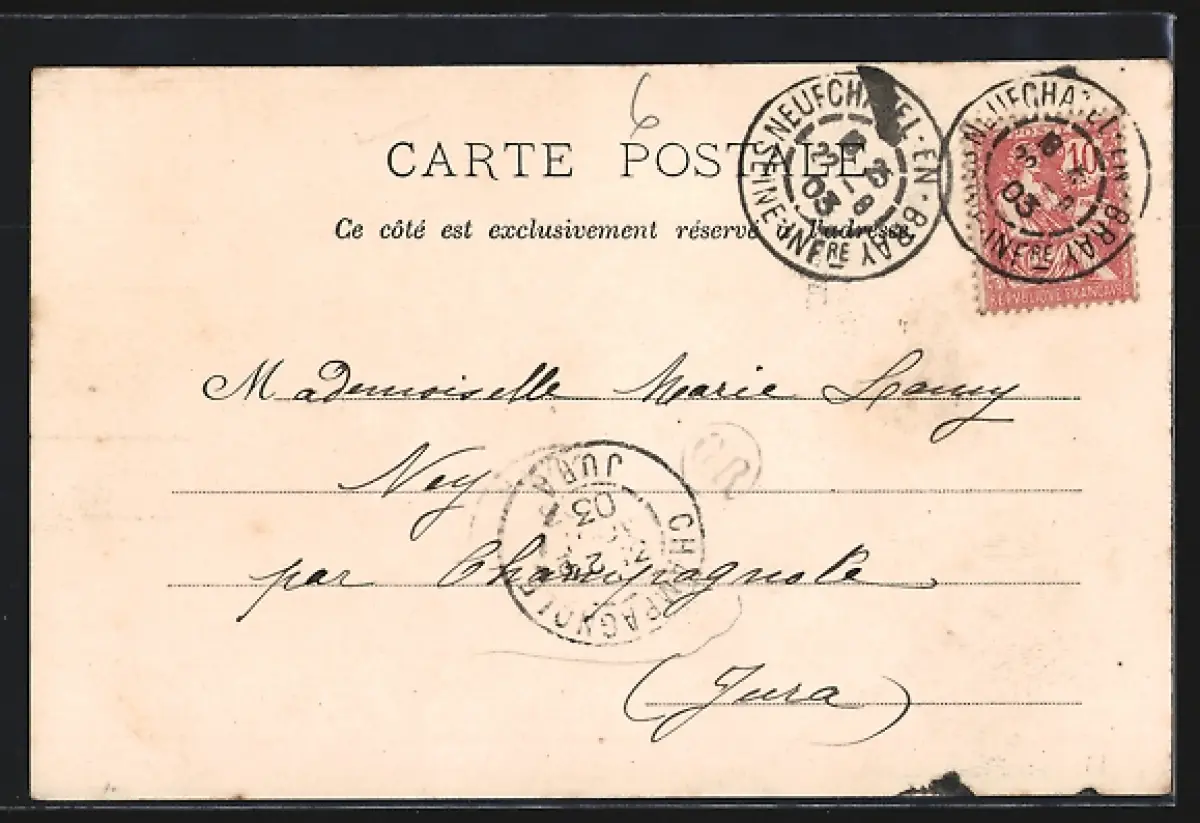 6
CARTE POSTALE
Ce côté est exclusivement réservé à l'adresse
NEUFCHATEL-EN-BRAY
SEINE-INFRE
03
NEUFCHATEL-EN-BRAY
INFRE
03
10
REPUBLIQUE FRANÇAISE
Mademoiselle Marie
Ney
par Champagnole
(Jura)
CHAMPAGNOLE
JURA
03